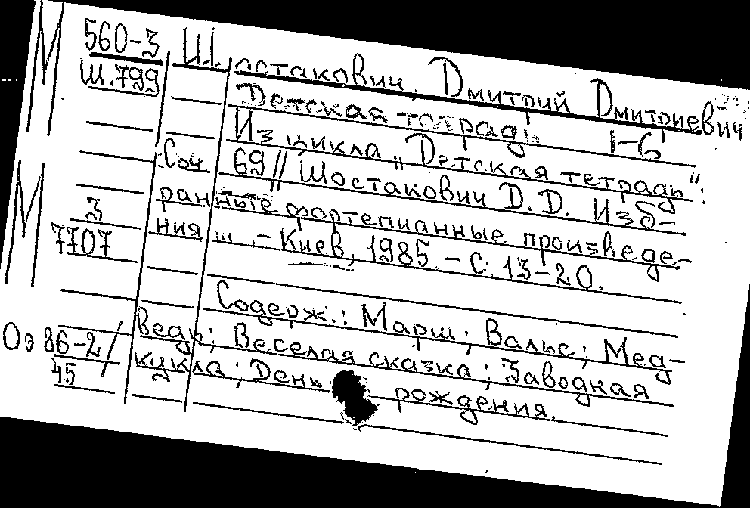 М 560-3 Шостакович, Дмитрий Дмитриевич
Ш.799 Детская тетрадь. 1-6
Из цикла „Детская тетрадь":
Соч. 69 // Шостакович Д. Д. Изб-
М 3 ранные фортепианные произведе-
7707 ния ... - Киев, 1985. - С. 13-20.
Содерж.: Марш; Вальс; Мед-
Оэ 86-2/ ведь; Веселая сказка; Заводная
45 кукла; День рождения.